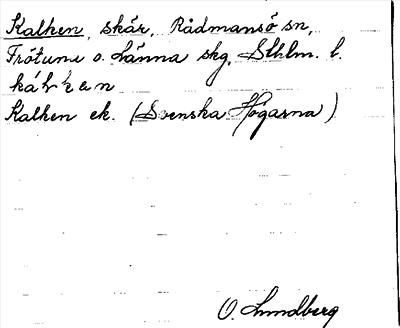 Kalken, skär, Rådmansö sn,
Frötuna o. Länna skg, Sthlm. l.
Kalken ek. (Svenska Högarna)
O. Lundberg